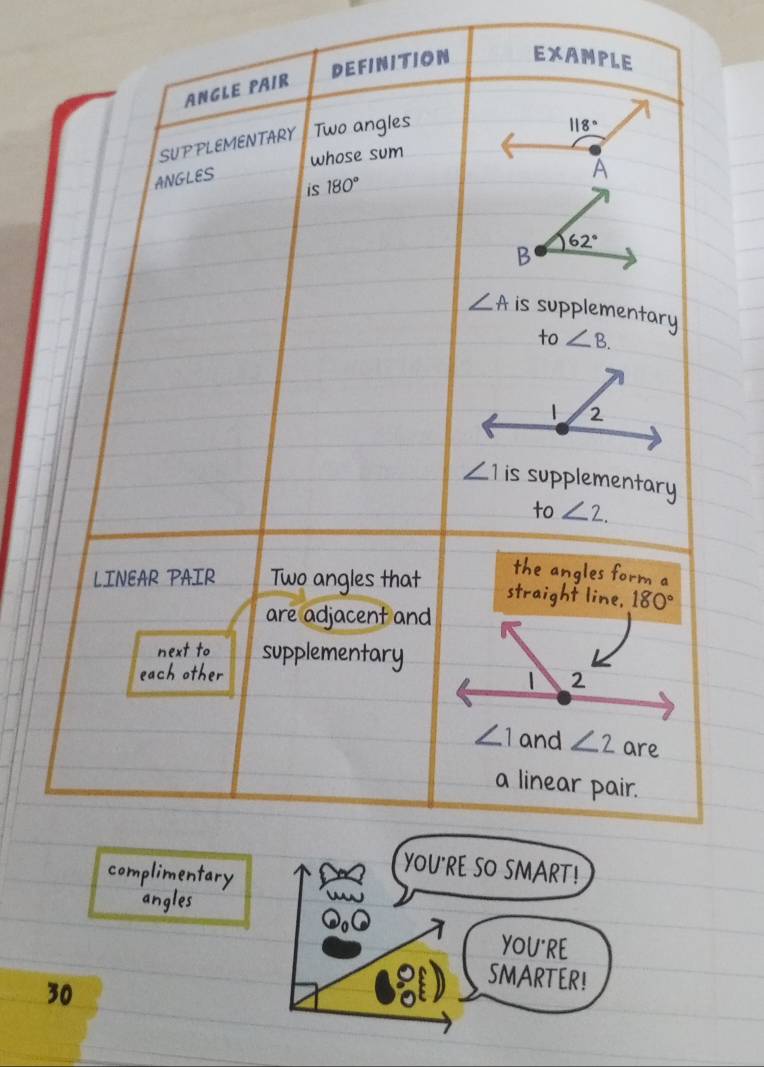 ANGLE PAIR
DEFINITION
EXAMPLE
SUPPLEMENTARY
ANGLES
Two angles
whose sum
is 180°
118°
A
62°
B
∠A is supplementary
to ∠B.
1 2
∠1 is supplementary
to ∠2.
LINEAR PAIR
Two angles that
are adjacent and
supplementary
next to
each other
the angles form a
straight line, 180°
1 2
∠1 and ∠2 are
a linear pair.
complimentary
angles
YOU'RE SO SMART!
YOU'RE
SMARTER!
30